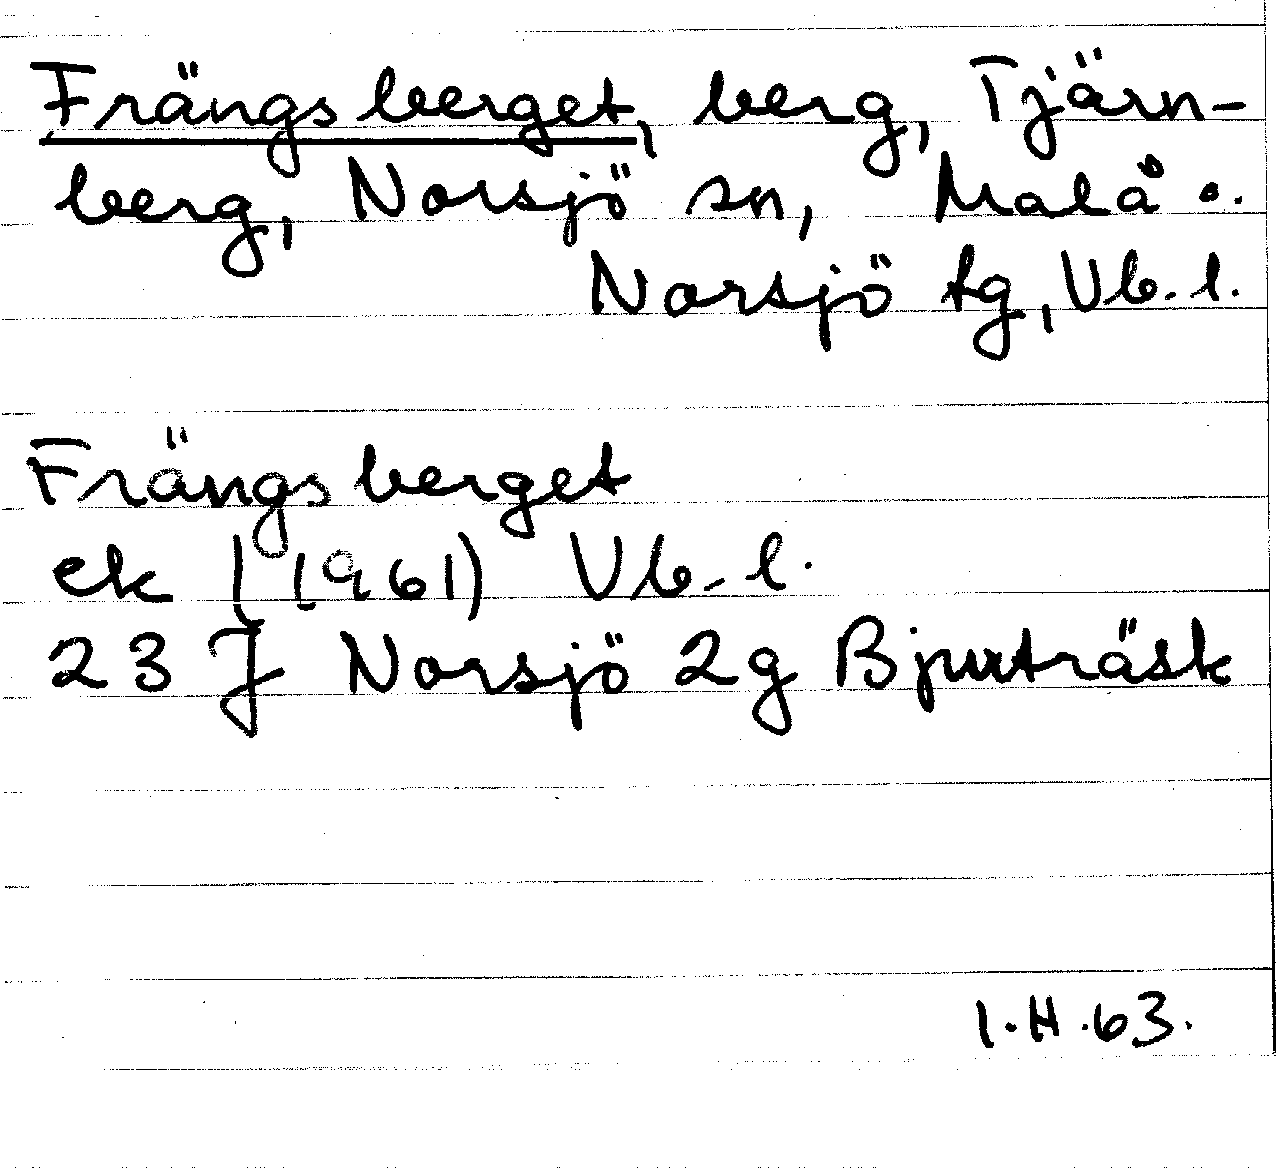 Frängsberget, berg, Tjärn-
berg, Norsjö sn, Malå o.
Norsjö tg, Vb. l.
Frängsberget
ek (1961) Vb. l.
23 J Norsjö 2g Bjurträsk
I.H.63.